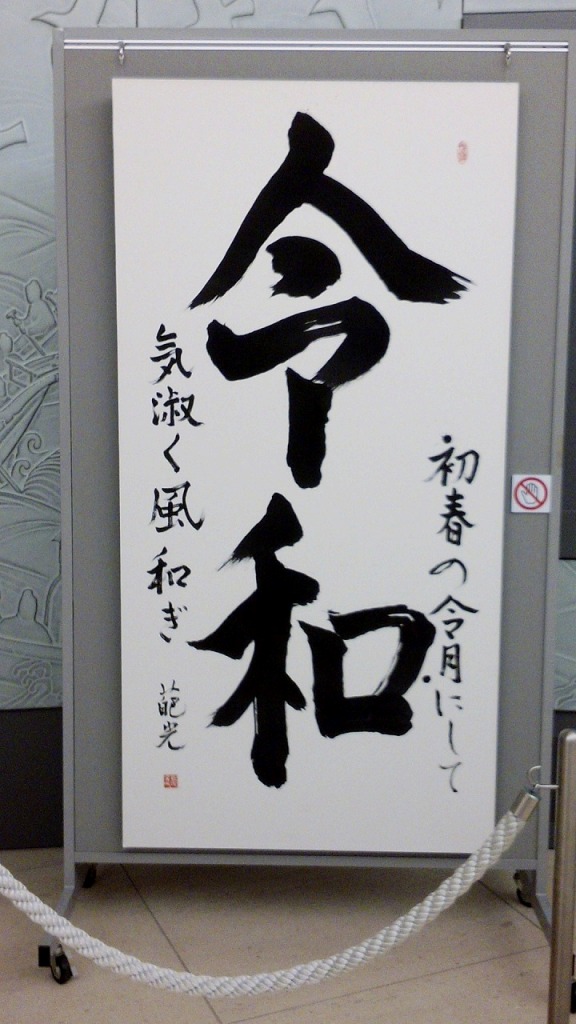 初春の令月にして
令和
気淑く風和ぎ
葩光